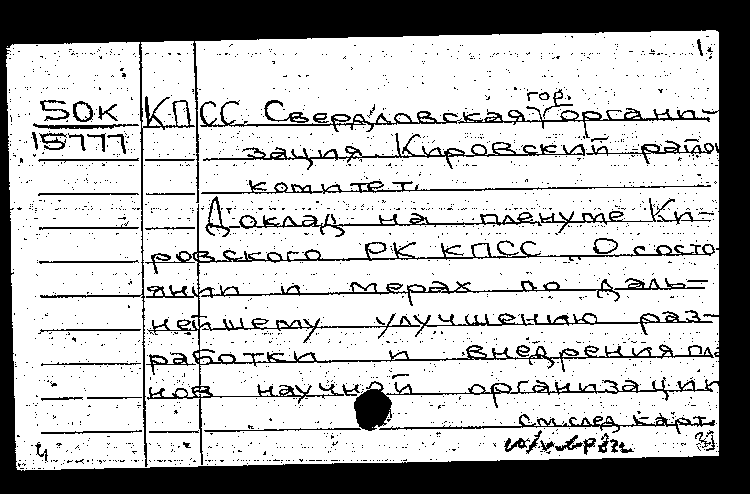 1.
50К КПСС. Свердловская гор. органи-
15777 зация. Кировский райо
комитет.
Доклад на пленуме Ки-
ровского РК КПСС „О состо
янии и мерах по даль-
нейшему улучшению раз-
работки и внедрения пла
нов научной организации
см.след.карт.
4